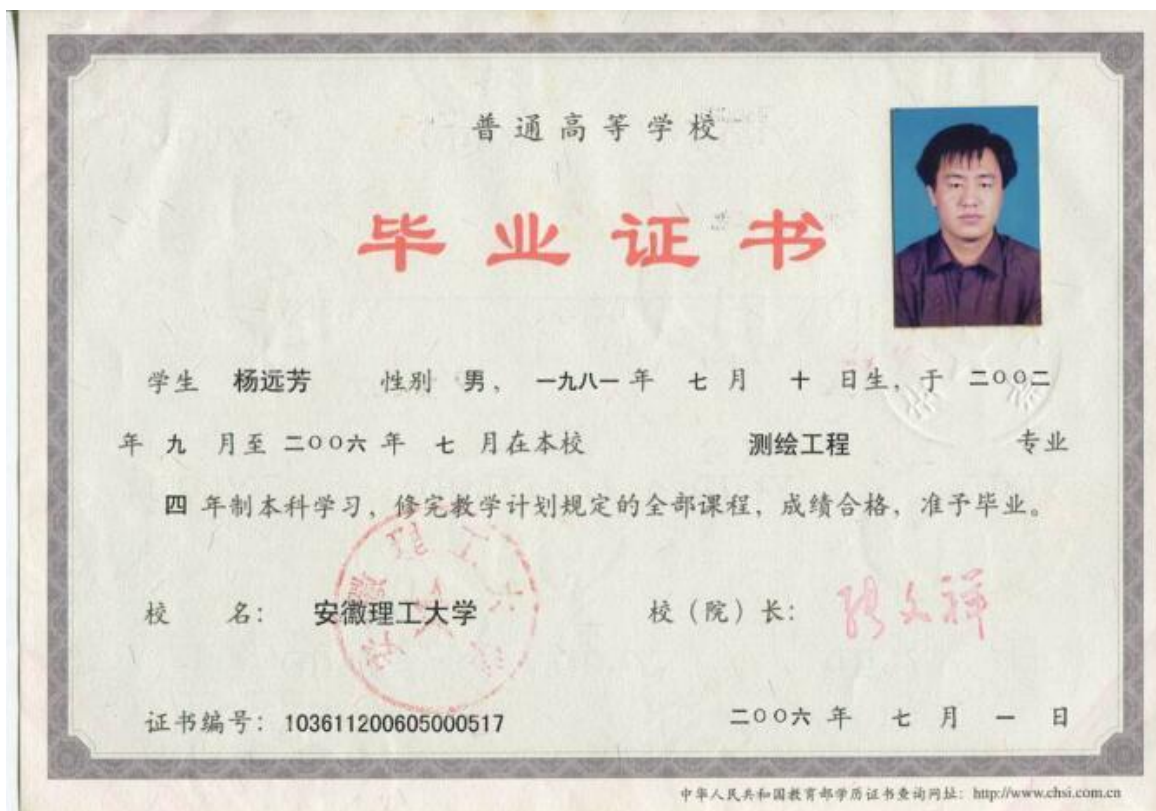 普通高等学校
毕业证书
学生 杨远芳 性别 男，一九八一年 七 月 十 日生，于 二〇〇二
年 九 月至 二〇〇六 年 七 月在本校 测绘工程 专业
四 年制本科学习，修完教学计划规定的全部课程，成绩合格，准予毕业。
校 名：安徽理工大学 校（院）长：
安徽理工大学
证书编号：103611200605000517 二〇〇六 年 七 月 一 日
中华人民共和国教育部学历证书查询网址：http://www.chsi.com.cn